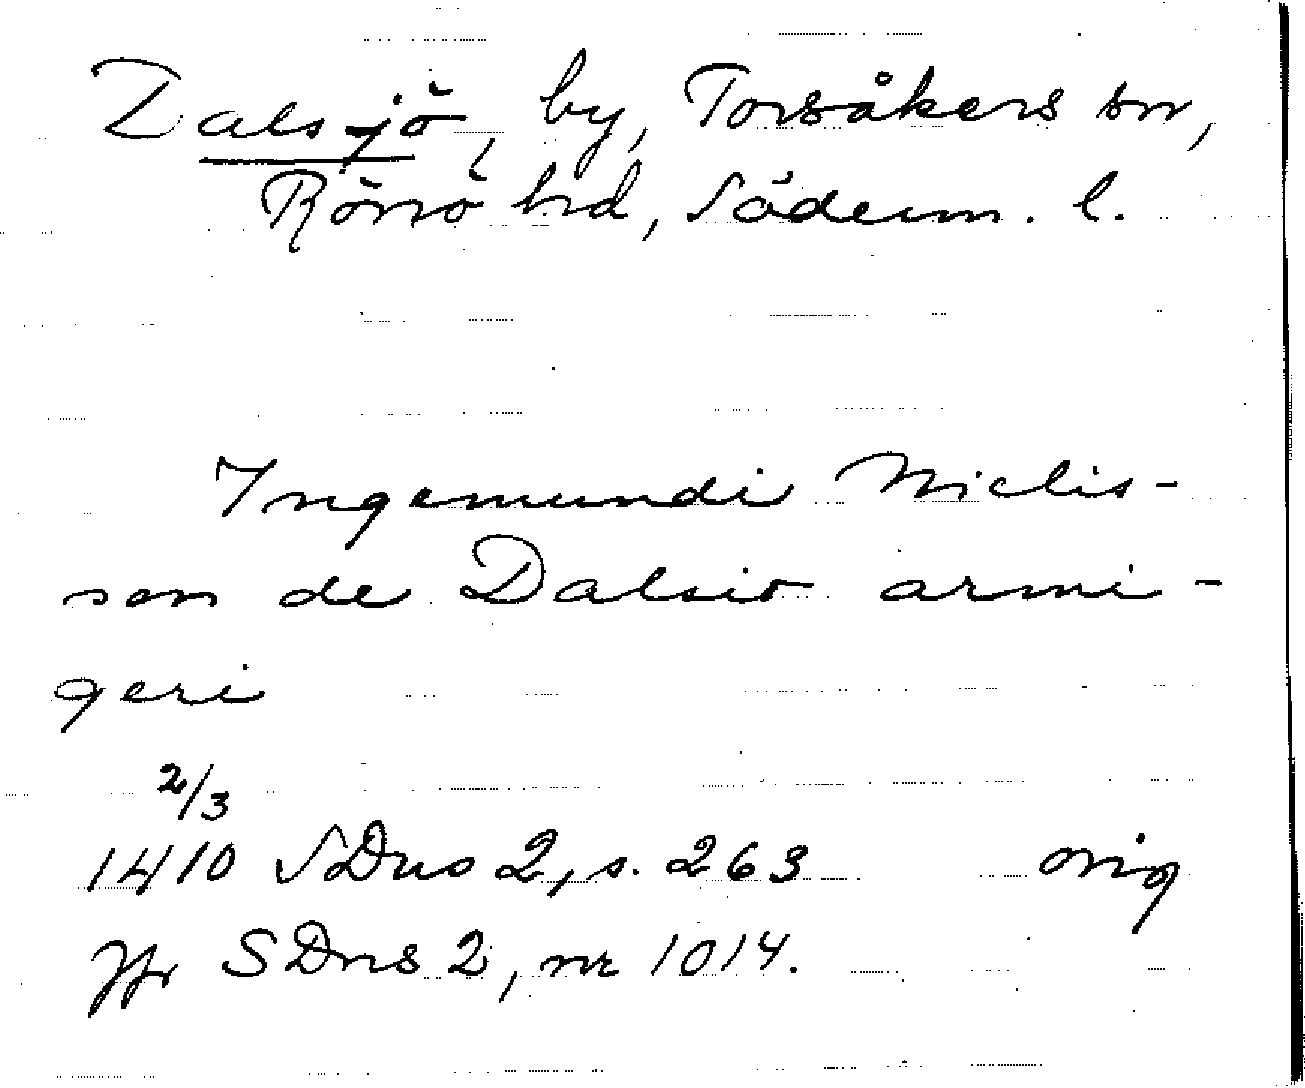 Dalsjö, by, Torsåkers sn,
Rönö hd, Söderm. l.
Ingemundi Niclis-
son de Dalsiø armi-
geri
2/3
1410 SDns 2, s. 263 orig
Jfr SDns 2, nr 1014.